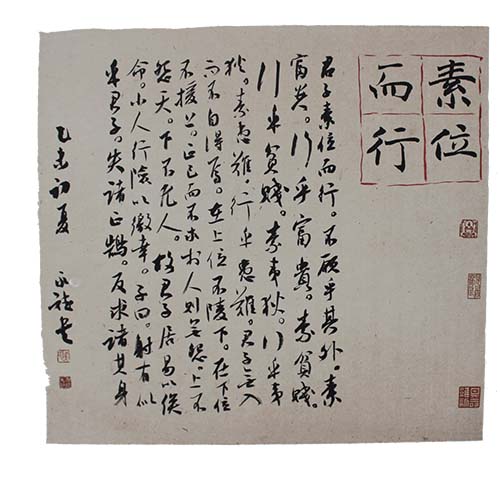 素位
而行
君子素位而行。不願乎其外。素
富貴。行乎富貴。素貧賤。
行乎貧賤。素夷狄。行乎夷
狄。素患難。行乎患難。君子無入
而不自得焉。在上位不陵下。在下位
不援上。正己而不求於人則無怨。上不
怨天。下不尤人。故君子居易以俟
命。小人行險以徼幸。子曰。射有似
乎君子。失諸正鵠。反求諸其身
乙未初夏